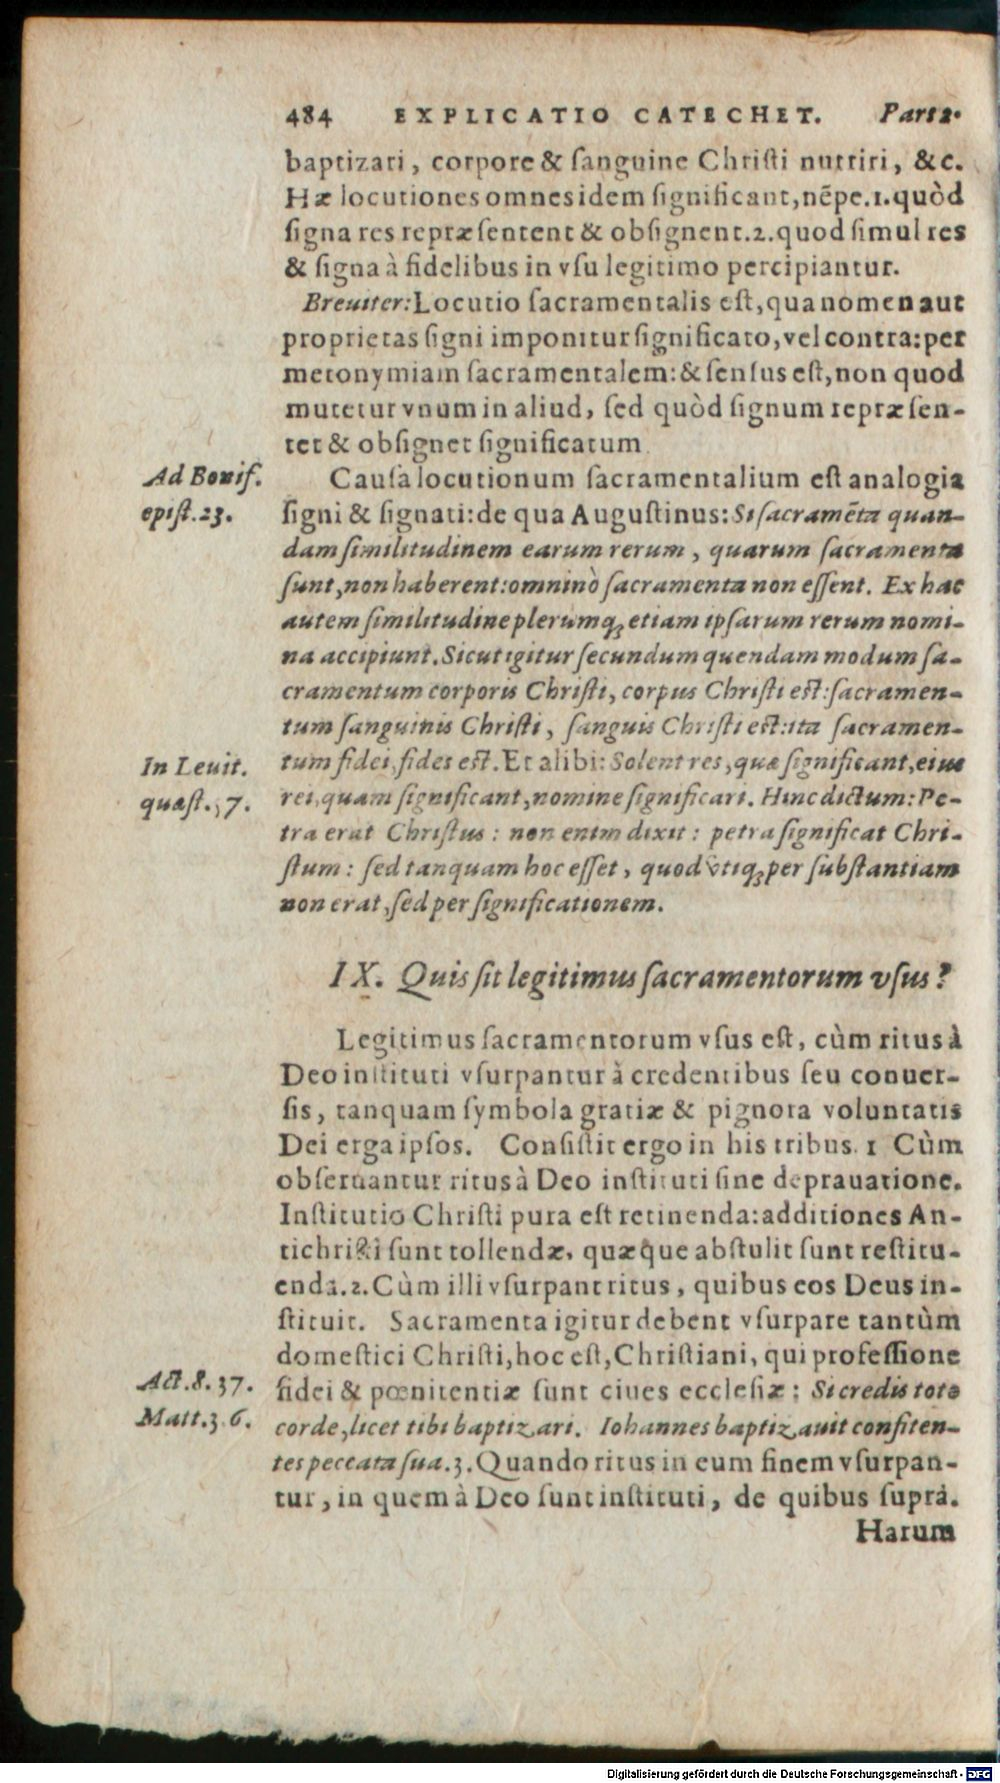 484 EXPLICATIO CATECHET. Pars 2.
baptizari, corpore & ſanguine Chriſti nutriri, &c.
Hæ locutiones omnes idem ſignificant, nẽpe. 1. quòd
ſigna res repræſentent & obſignent. 2. quod ſimul res
& ſigna à fidelibus in vſu legitimo percipiantur.
Breuiter: Locutio ſacramentalis eſt, qua nomen aut
proprietas ſigni imponitur ſignificato, vel contra: per
metonymiam ſacramentalem: & ſenſus eſt, non quod
mutetur vnum in aliud, ſed quòd ſignum repræſen-
tet & obſignet ſignificatum
Ad Bonif.
epiſt. 23.
Cauſa locutionum ſacramentalium eſt analogia
ſigni & ſignati: de qua Auguſtinus: Si ſacramẽta quan-
dam ſimilitudinem earum rerum, quarum ſacramenta
ſunt, non haberent: omninò ſacramenta non eſſent. Ex hac
autem ſimilitudine plerumq; etiam ipſarum rerum nomi-
na accipiunt. Sicut igitur ſecundum quendam modum ſa-
cramentum corporis Chriſti, corpus Chriſti eſt: ſacramen-
tum ſanguinis Chriſti, ſanguis Chriſti eſt: ita ſacramen-
In Leuit.
quæſt. 57.
tum fidei, fides eſt. Et alibi: Solent res, quæ ſignificant, eius
rei, quam ſignificant, nomine ſignificari. Hinc dictum: Pe-
tra erat Chriſtus: non enim dixit: petra ſignificat Chri-
ſtum: ſed tanquam hoc eſſet, quod vtiq; per ſubſtantiam
non erat, ſed per ſignificationem.
IX. Quis ſit legitimus ſacramentorum vſus?
Legitimus ſacramentorum vſus eſt, cùm ritus à
Deo inſtituti vſurpantur à credentibus ſeu conuer-
ſis, tanquam ſymbola gratiæ & pignora voluntatis
Dei erga ipſos. Conſiſtit ergo in his tribus. 1 Cùm
obſeruantur ritus à Deo inſtituti ſine deprauatione.
Inſtitutio Chriſti pura eſt retinenda: additiones An-
tichriſti ſunt tollendæ, quæque abſtulit ſunt reſtitu-
enda. 2. Cùm illi vſurpant ritus, quibus eos Deus in-
ſtituit. Sacramenta igitur debent vſurpare tantùm
domeſtici Chriſti, hoc eſt, Chriſtiani, qui profeſſione
Act. 8. 37.
Matt. 3. 6.
fidei & pœnitentiæ ſunt ciues eccleſiæ: Si credis toto
corde, licet tibi baptizari. Iohannes baptizauit confiten-
tes peccata ſua. 3. Quando ritus in eum finem vſurpan-
tur, in quem à Deo ſunt inſtituti, de quibus ſuprà.
Harum
Digitalisierung gefördert durch die Deutsche Forschungsgemeinschaft - DFG